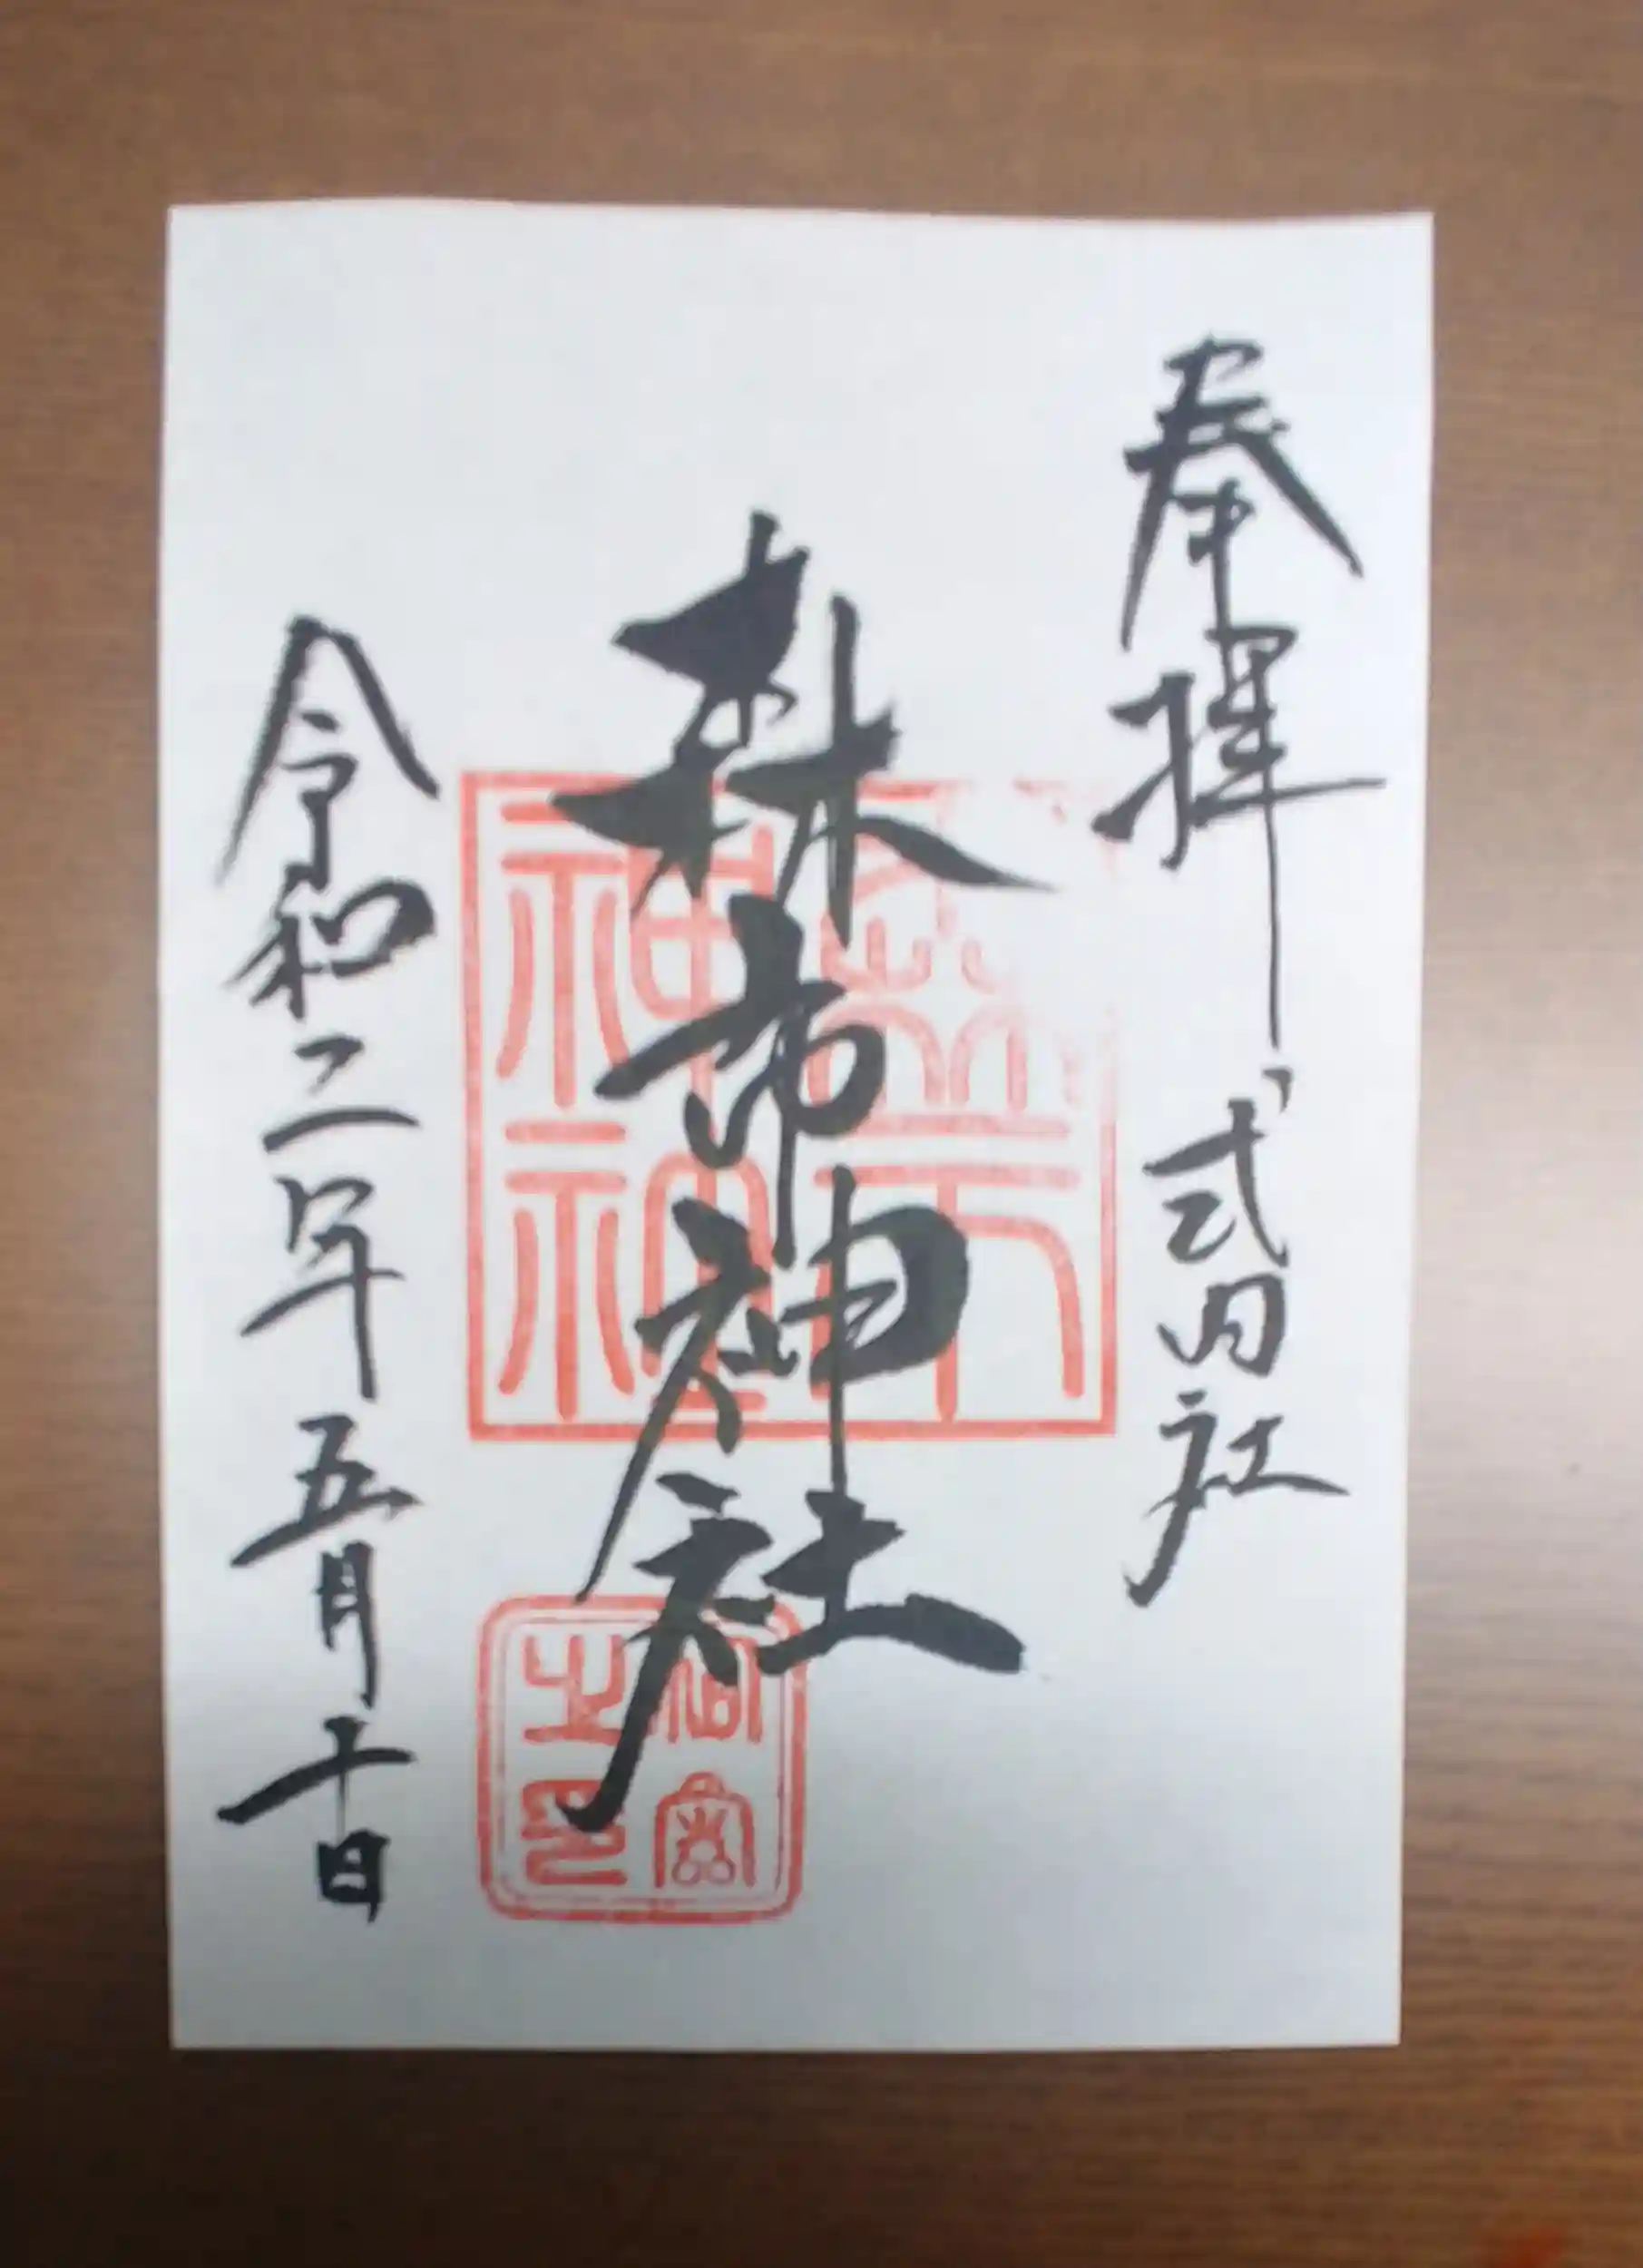 奉拝 式内社
森市神社
令和二年五月十日